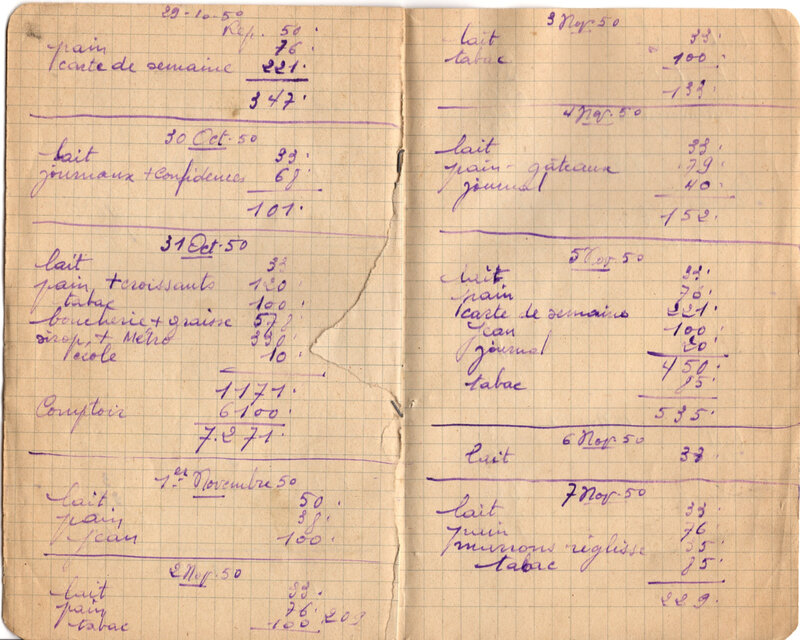 29-10-50
Rep. 50.
pain 76.
carte de semaine 221.
347.
30 Oct-50
lait 33.
journaux + confidences 68.
101.
31 Oct-50
lait 33
pain, + croissants 120.
tabac 100.
boucherie + graisse 578.
sirop, + Métro 330.
école 10.
1171.
Comptoir 6100.
7.271.
1er Novembre 50
lait 50.
pain 38.
Jean 100.
2 Nov-50
lait 33.
pain 76.
tabac 100. 209
3 Nov-50
lait 33.
tabac 100.
133.
4 Nov-50
lait 33.
pain-gâteaux 79
journal 40.
152.
5 Nov-50
lait 33.
pain 76.
carte de semaine 221.
Jean 100.
journal 20.
450.
tabac 85.
535.
6 Nov-50
lait 33.
7 Nov-50
lait 33.
pain 76
réglisse 35.
tabac 85.
229.